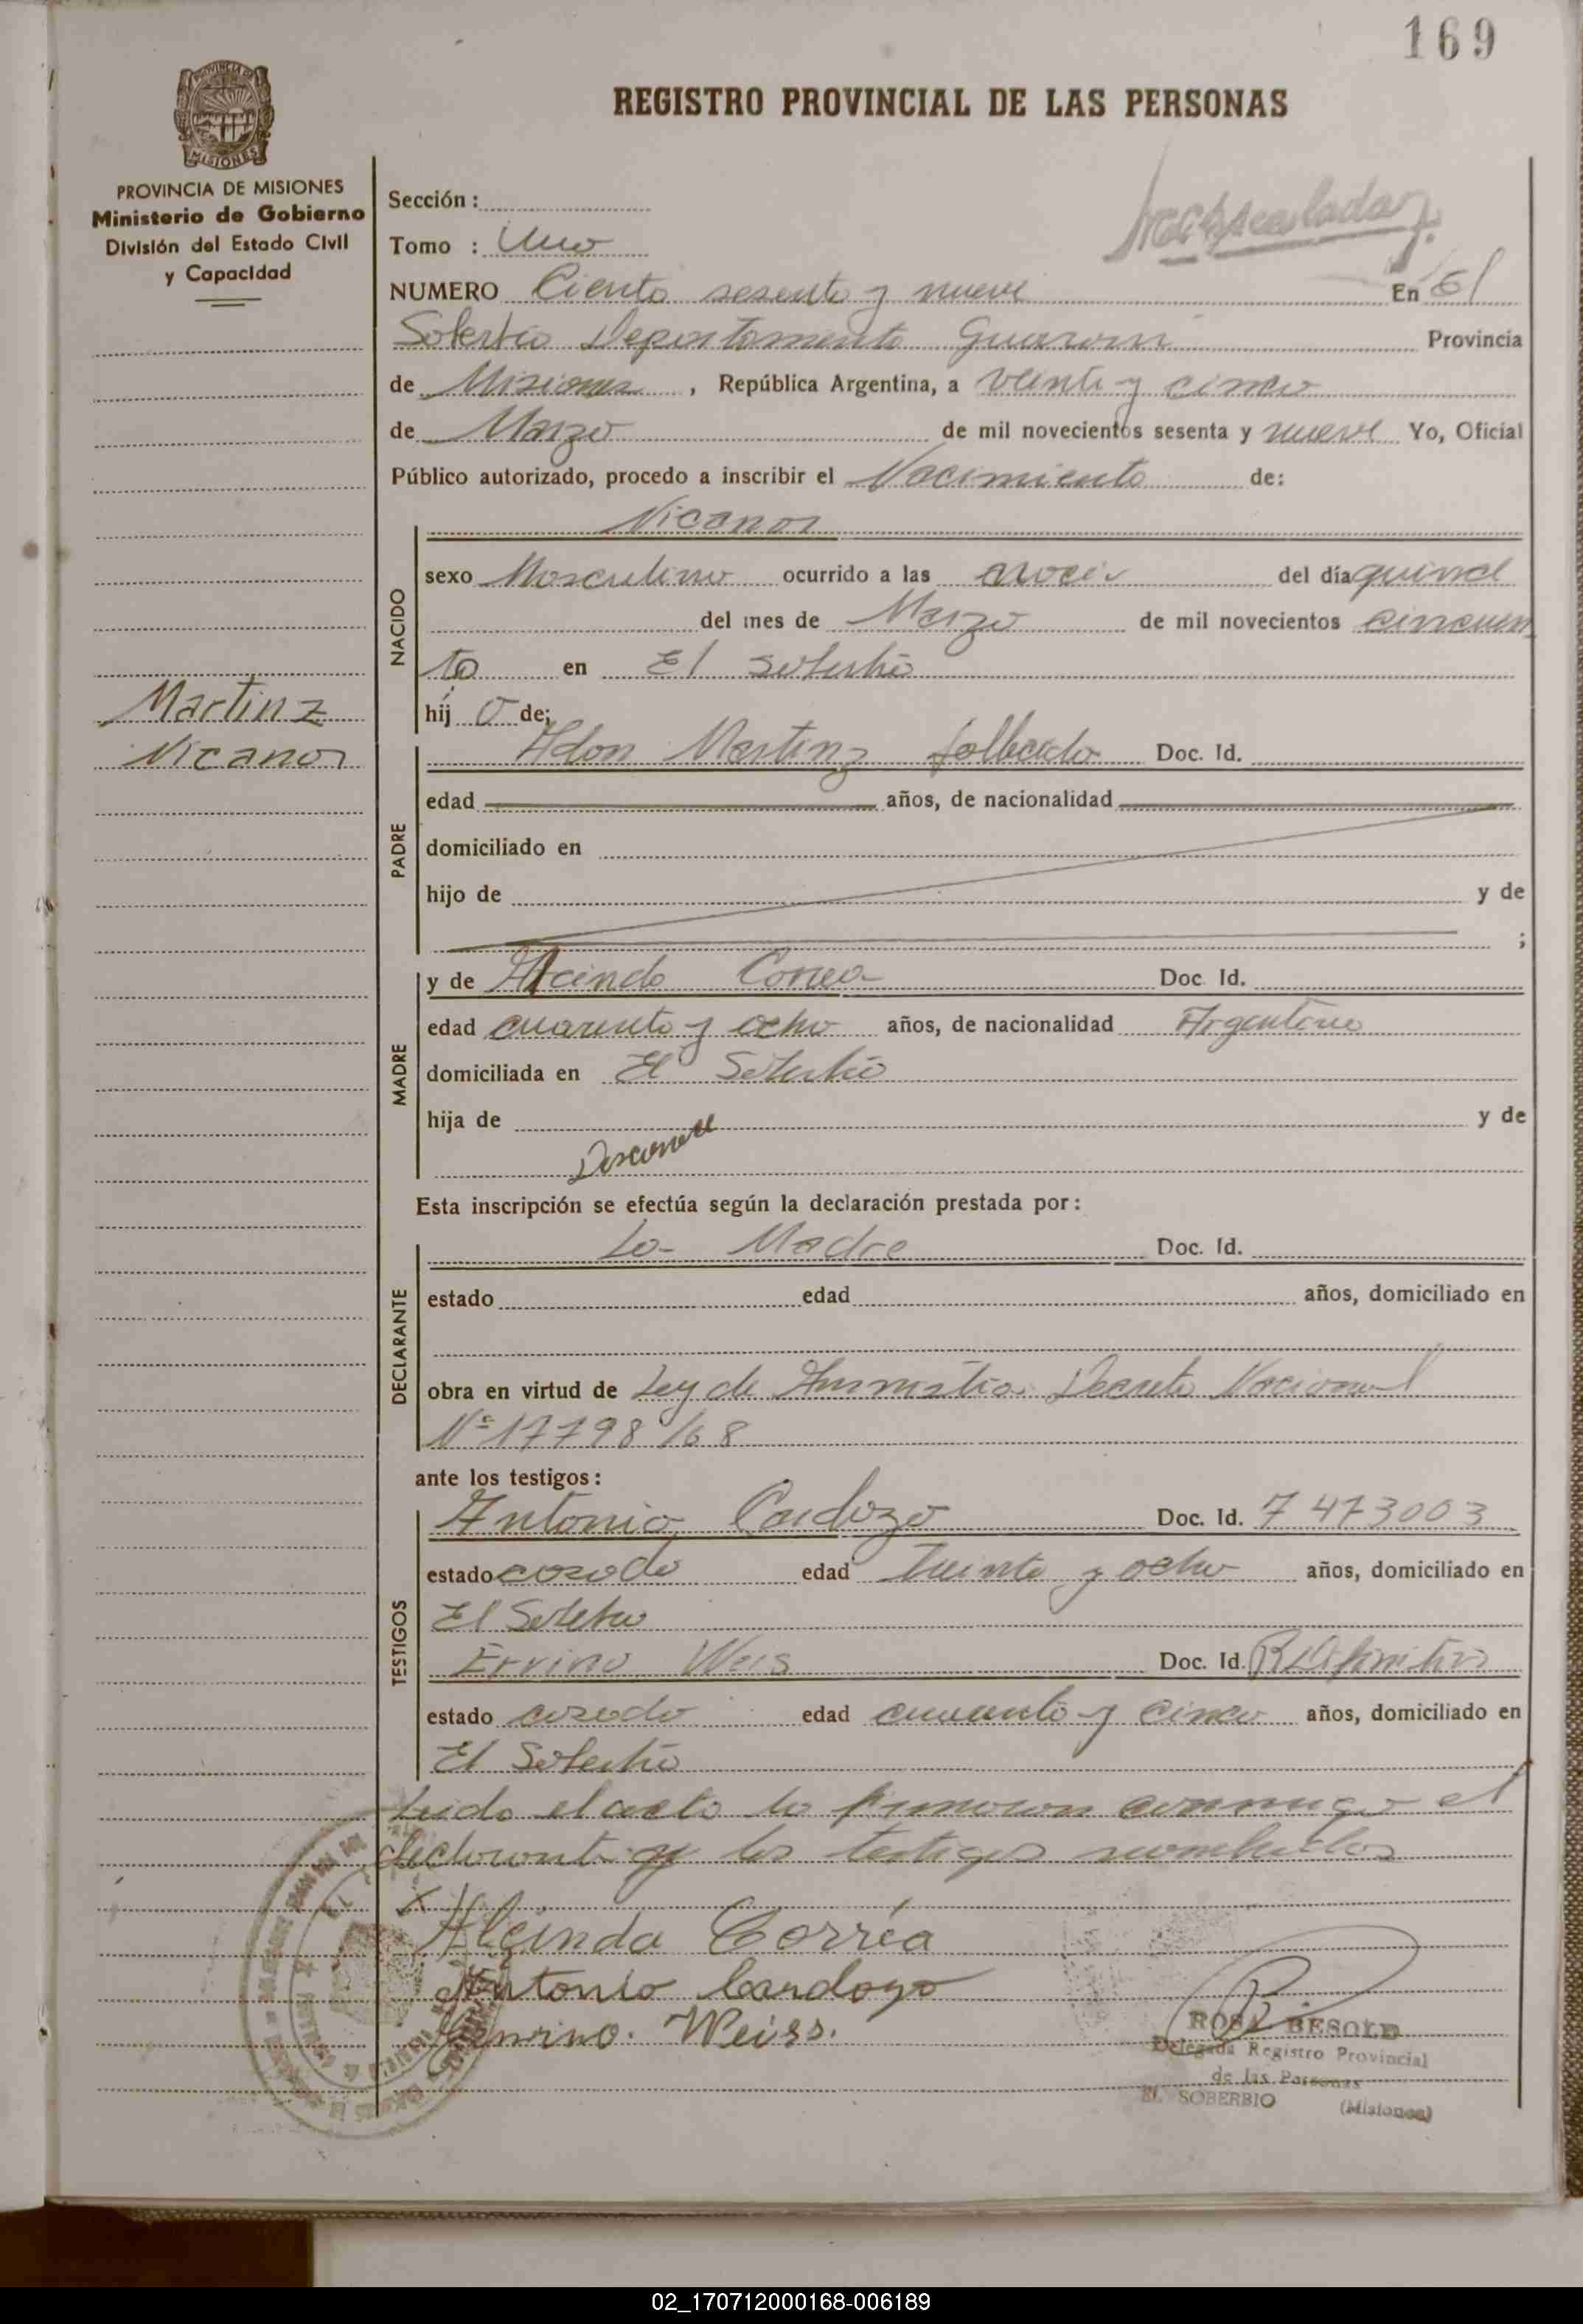 169
REGISTRO PROVINCIAL DE LAS PERSONAS
PROVINCIA DE MISIONES
MISIONES
PROVINCIA DE MISIONES
Ministerio de Gobierno
División del Estado Civil
y Capacidad
Sección :
Tomo : Uno
NUMERO Ciento sesenta y nueve En El
Soberbio Departamento Guarani Provincia
de Misiones , República Argentina, a veinte y cinco
de Marzo de mil novecientos sesenta y nueve Yo, Oficial
Público autorizado, procedo a inscribir el Nacimiento de:
NACIDO
Nicanor
sexo Masculino ocurrido a las del día quince
del mes de Marzo de mil novecientos cincuen
ta en El Soberbio
hij o de;
Martinz
Nicanor
PADRE
Adon Martinz Doc. Id.
edad años, de nacionalidad
domiciliado en
hijo de y de
;
MADRE
y de Alcinda Correa Doc. Id.
edad cuarenta y ocho años, de nacionalidad Argentina
domiciliada en El Soberbio
hija de y de
Desconoce
Esta inscripción se efectúa según la declaración prestada por :
DECLARANTE
La Madre Doc. Id.
estado edad años, domiciliado en
obra en virtud de Ley de Amnistia Decreto Nacional
Nº 17798/68
ante los testigos :
TESTIGOS
Antonio Cardozo Doc. Id. 7473003
estado casado edad treinta y ocho años, domiciliado en
El Soberbio
Ervino Weis Doc. Id.
estado casado edad cuarenta y cinco años, domiciliado en
El Soberbio
Leido el acta la firmaron conmigo el
declarante y los testigos nombrados
X
Alcinda Corrêa
Antonio Cardozo
Weiss.
ROSA BESOLD
Delegada Registro Provincial
de las Personas
EL SOBERBIO (Misiones)
02_170712000168-006189